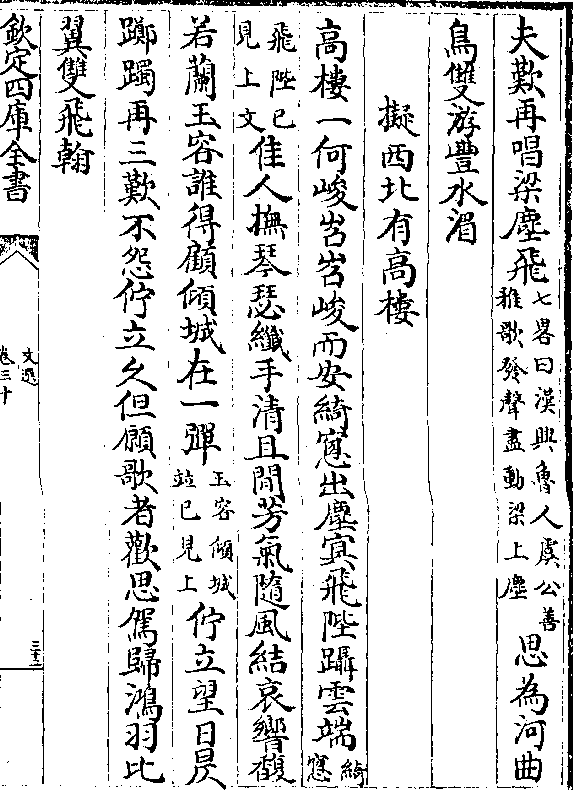 夫歎再唱梁塵飛七畧曰漢興魯人虞公善雅歌發聲盡動梁上塵思為河曲
鳥雙游豐水湄
擬西北有高樓
高樓一何峻岧岧峻而安綺窓出塵㝠飛陛躡雲端綺窓
飛陛已見上文佳人撫琴瑟纖手清且閒芳氣隨風結哀響馥
若蘭玉容誰得顧傾城在一彈玉容傾城竝已見上佇立望日昃
躑躅再三歎不怨佇立久但願歌者歡思駕歸鴻羽比
翼雙飛翰
欽定四庫全書
文選
卷三十